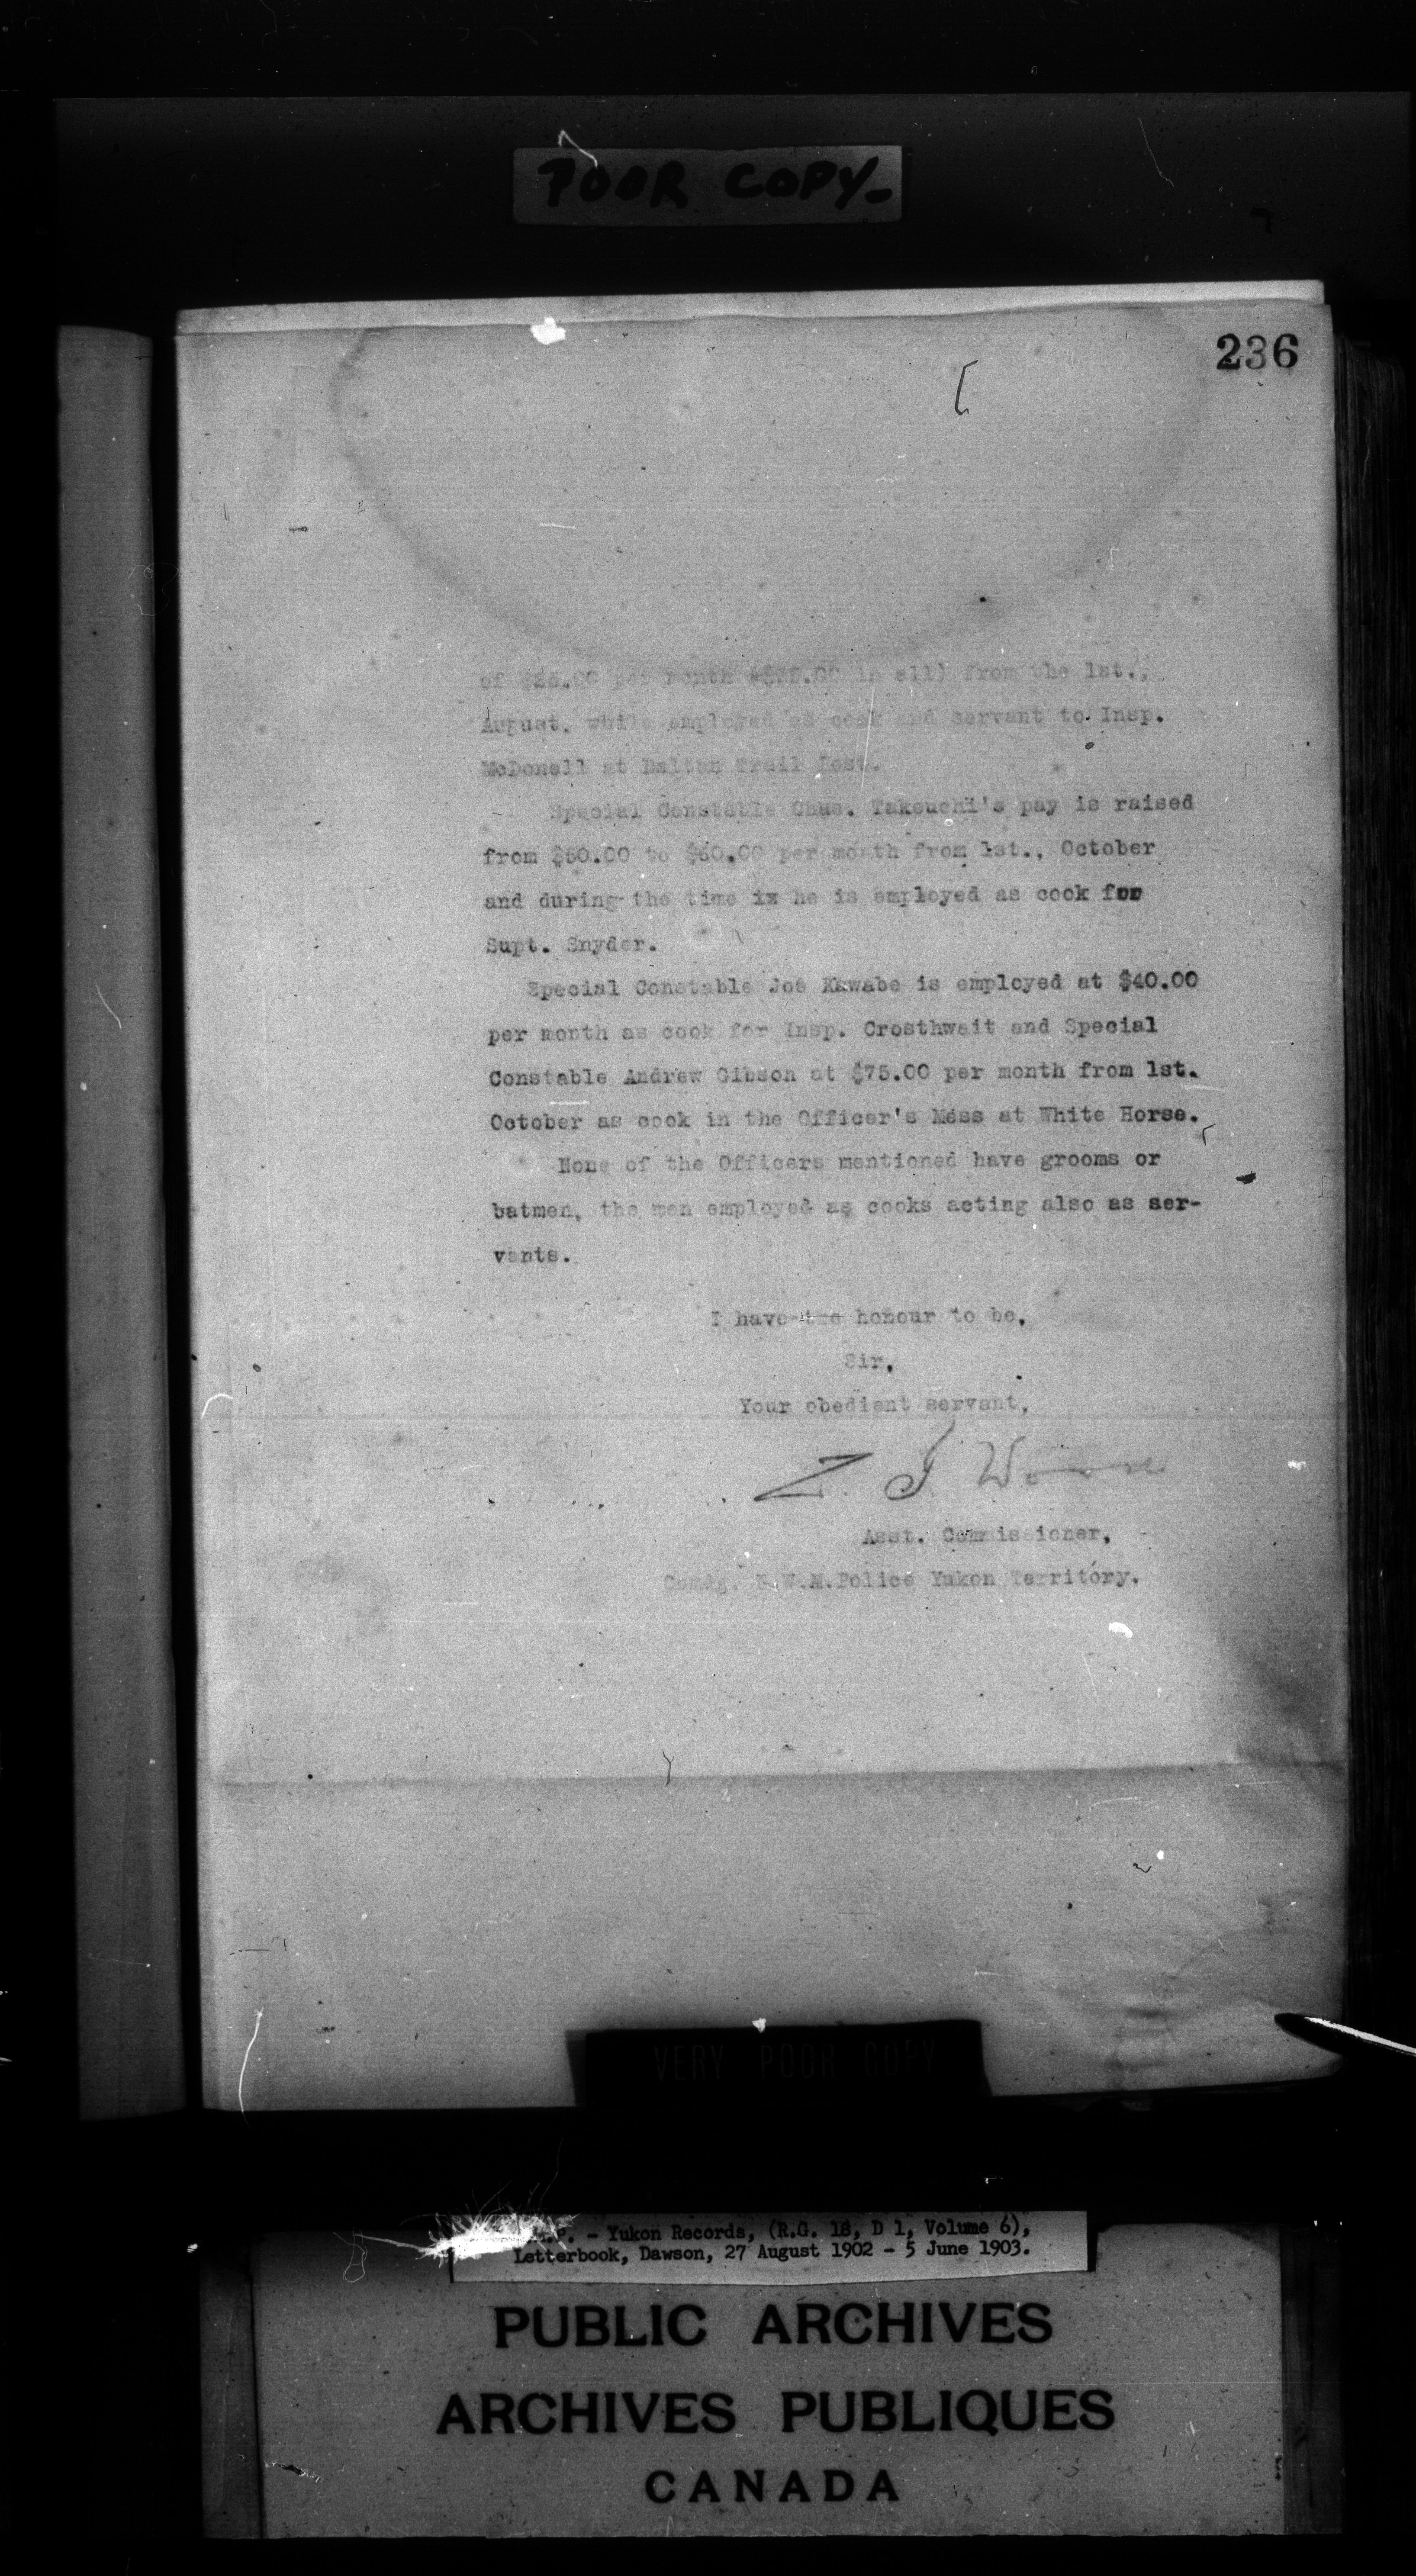 POOR COPY-
236
of per month in all) from the 1st.,
August. while employed as cook and servant to Insp.
McDonell at Dalton Trail Post.
Special Constable Chas. Takeuchi's pay is raised
from $50.00 to $60.00 per month from 1st., October
and during the time ix he is employed as cook for
Supt. Snyder.
Special Constable Joe Kawabe is employed at $40.00
per month as cook for Insp. Crosthwait and Special
Constable Andrew Gibson at $75.00 per month from 1st.
October as cook in the Officer's Mess at White Horse.
None of the Officers mentioned have grooms or
batmen, the men employed as cooks acting also as ser-
vants.
I have the honour to be,
Sir,
Your obedient servant,
Z. T. Wood
Asst. Commissioner,
Comdg. N.W.M.Police Yukon Territory.
VERY POOR COPY
- Yukon Records, (R.G. 18, D 1, Volume 6),
Letterbook, Dawson, 27 August 1902 - 5 June 1903.
PUBLIC ARCHIVES
ARCHIVES PUBLIQUES
CANADA